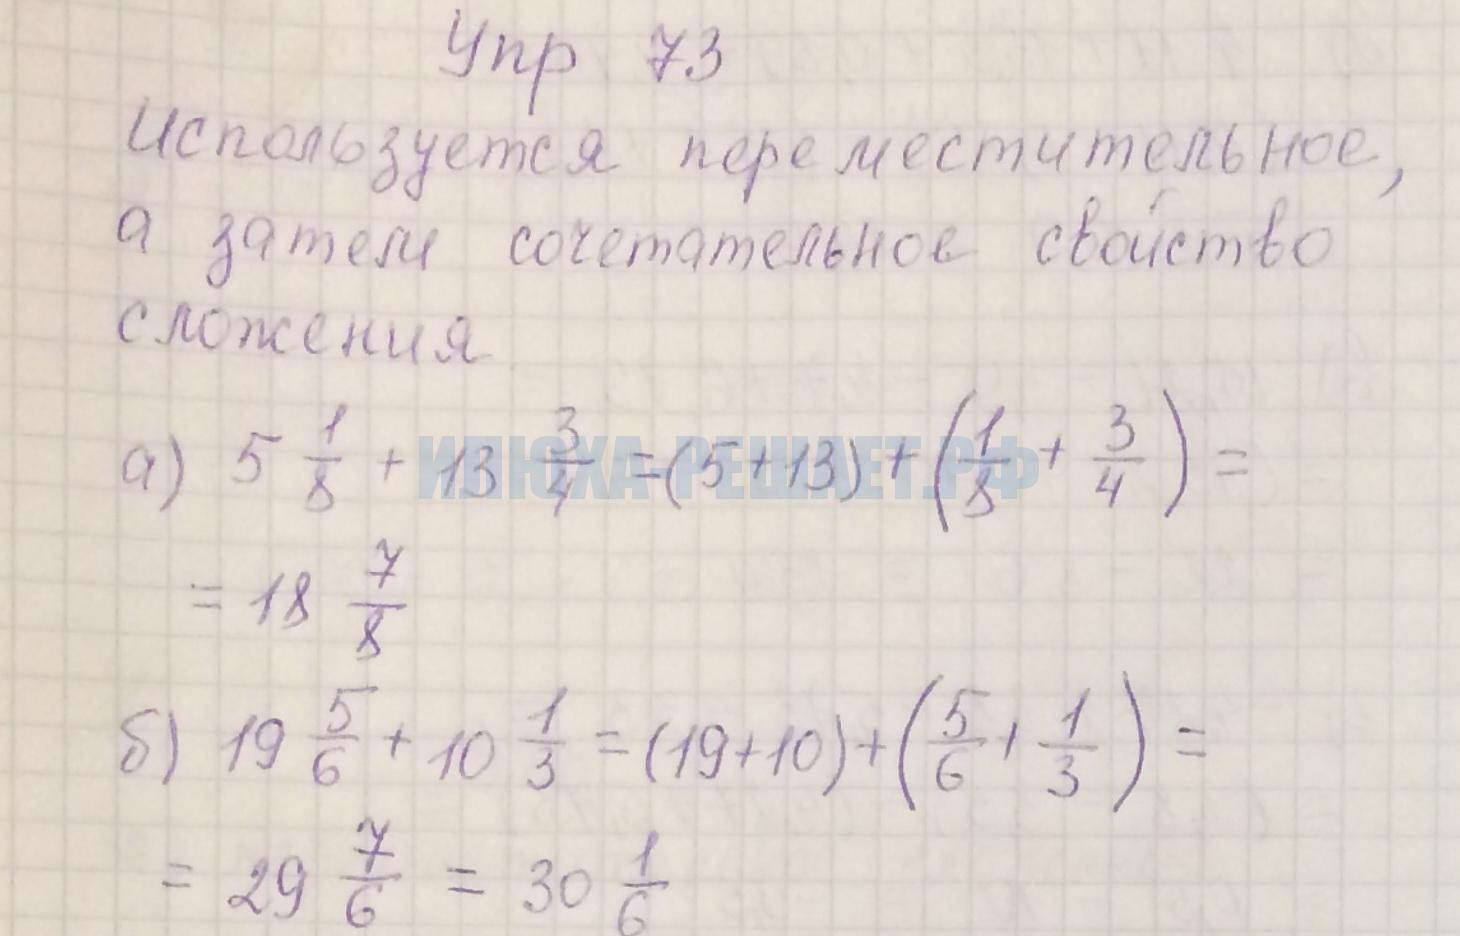 Упр 73
Используется переместительное,
а затем сочетательное свойство
сложения
а) 5 1/8 + 13 3/4 = (5+13) + (1/8 + 3/4) =
= 18 7/8
б) 19 5/6 + 10 1/3 = (19+10) + (5/6 + 1/3) =
= 29 7/6 = 30 1/6
ИЛЮХА-РЕШАЕТ.РФ